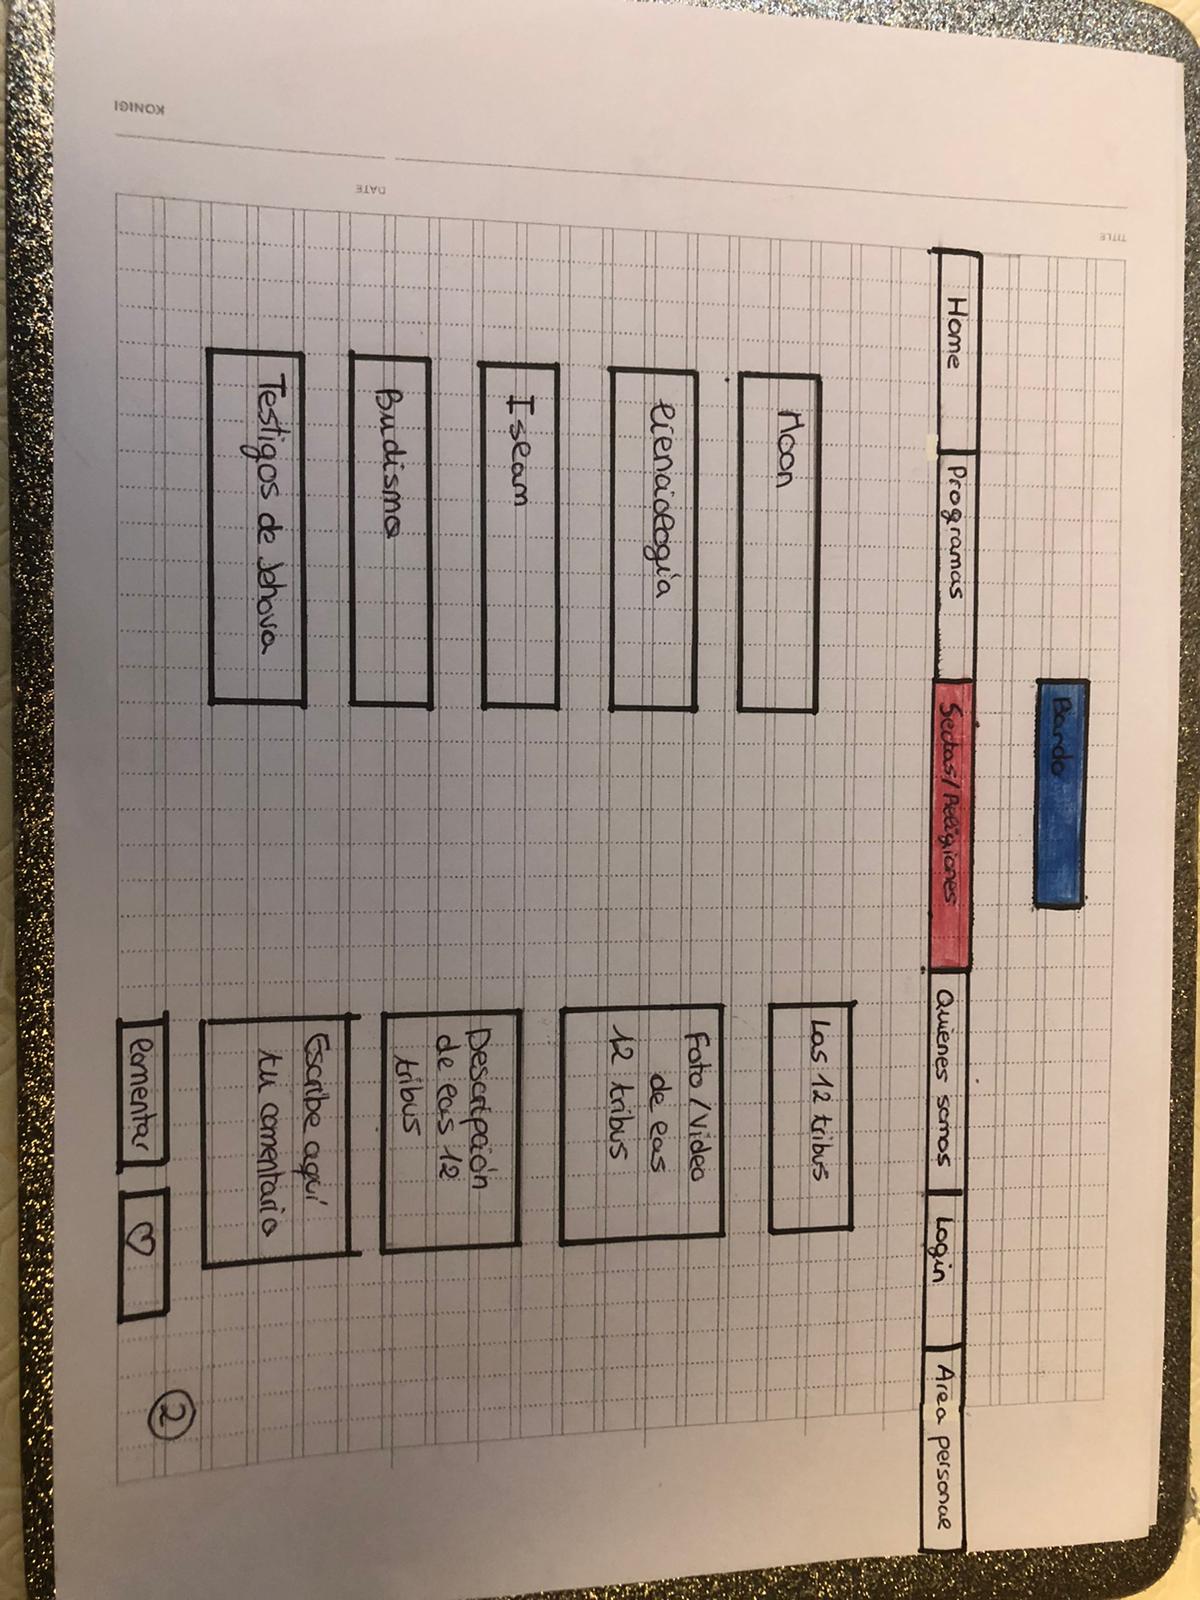 TITLE
DATE
KONIGI
Bardo
Home
Programas
Sectas/Religiones
Quiénes somos
Login
Area personal
Moon
Cienciología
Islam
Budismo
Testigos de Jehova
Las 12 tribus
Foto/Video
de las
12 tribus
Descripción
de las 12
tribus
Escribe aquí
tu comentario
Comentar
2